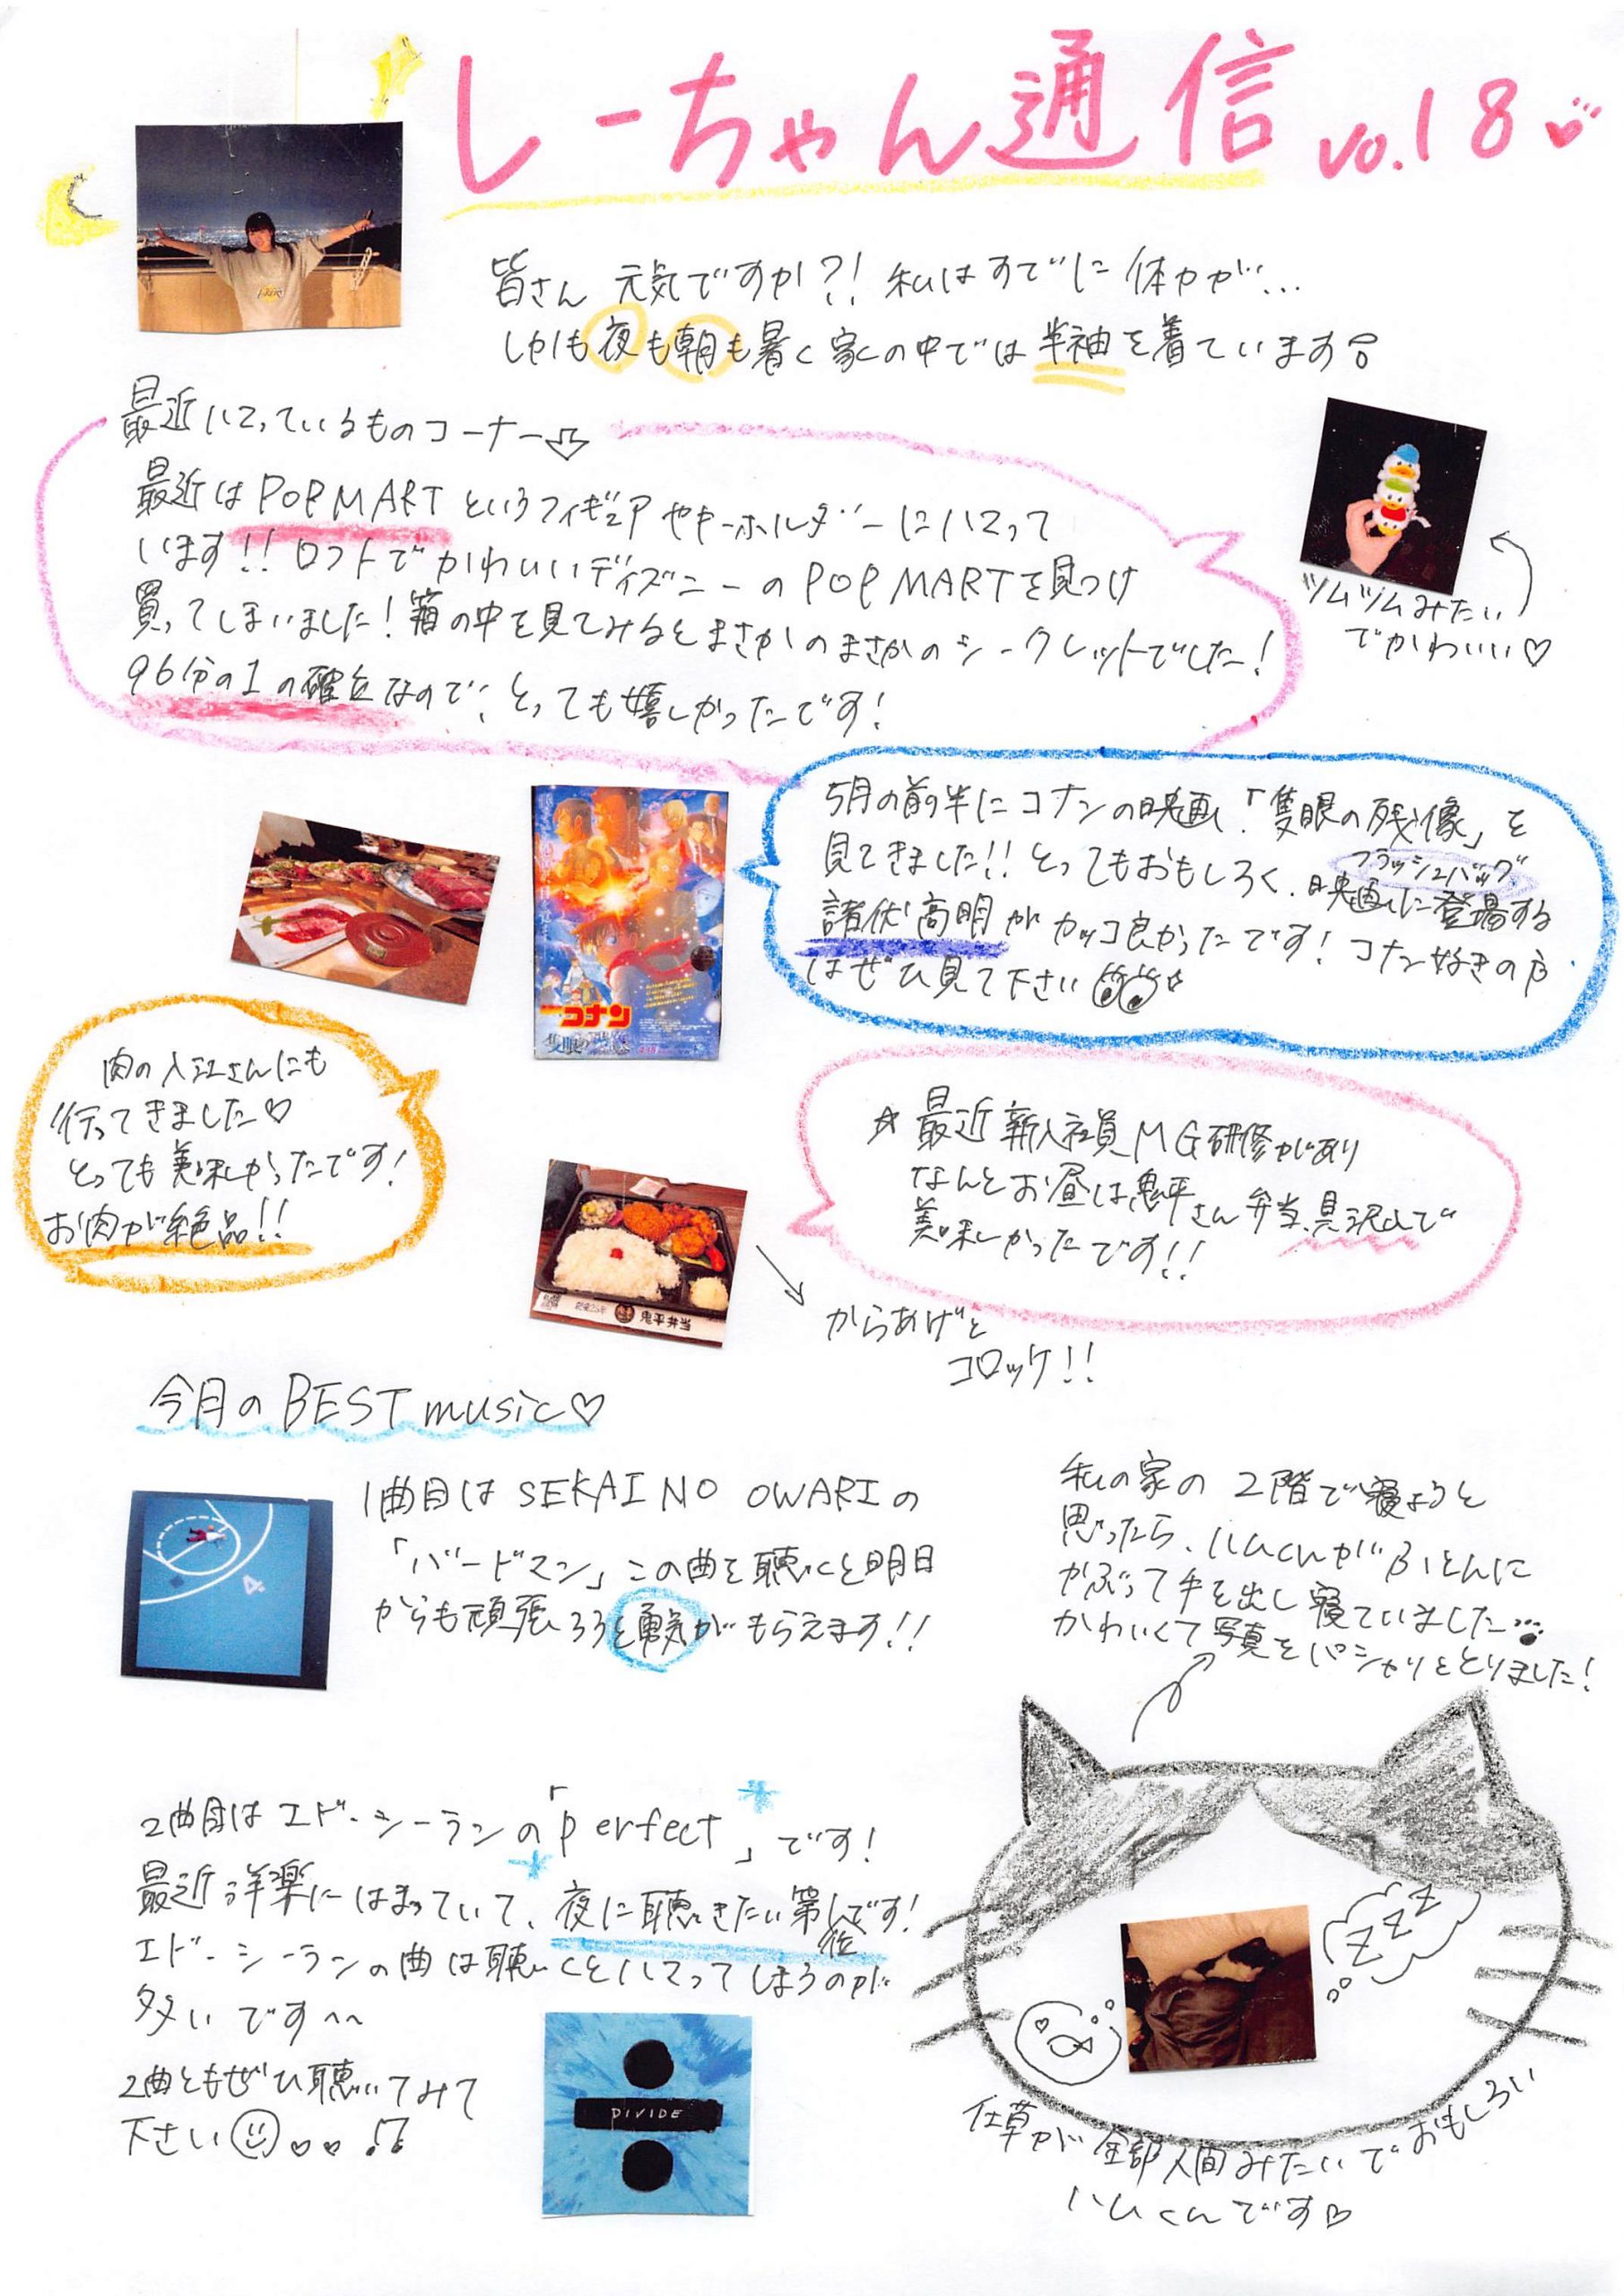 しーちゃん通信 vo.18
皆さん 元気ですか?! 私はすでに 体力が…
しかも夜も朝も暑く家の中では半袖を着ています
最近ハマっているものコーナー
最近はPOP MARTというフィギュアやキーホルダーにハマって
います!! ロフトでかわいいディズニーのPOP MARTを見つけ
買ってしまいました! 箱の中を見てみるとまさかのまさかのシークレットでした!
96分の1の確立なので、とっても嬉しかったです!
ツムツムみたい
でかわいい♡
5月の前半にコナンの映画、「隻眼の残像」を
フラッシュバック
見てきました!! とってもおもしろく、映画に登場する
諸伏高明がカッコ良かったです! コナン好きの方
はぜひ見て下さい
コナン
隻眼の残像
肉の入江さんにも
行ってきました♡
とっても美味しかったです!
お肉が絶品!!
☆最近新入社員MG研修があり
なんとお昼は鬼平さん弁当、具沢山で
美味しかったです!!
鬼平弁当
からあげと
コロッケ!!
今月のBEST music♡
1曲目は SEKAI NO OWARIの
「バードマン」この曲を聴くと明日
からも頑張ろうと勇気がもらえます!!
私の家の 2階で寝ようと
思ったら、ハムくんがふとんに
かぶって手を出し寝ていました
かわいくて写真をパシャリととりました!
2曲目はエド・シーランの「perfect」です!
最近洋楽にはまっていて、夜に聴きたい第1位です!
エド・シーランの曲は聴くとハマってしまうのが
多いです〜〜
2曲ともぜひ聴いてみて
下さい
DIVIDE
ZZZ
仕草が全部人間みたいでおもしろい
ハムくんです♡